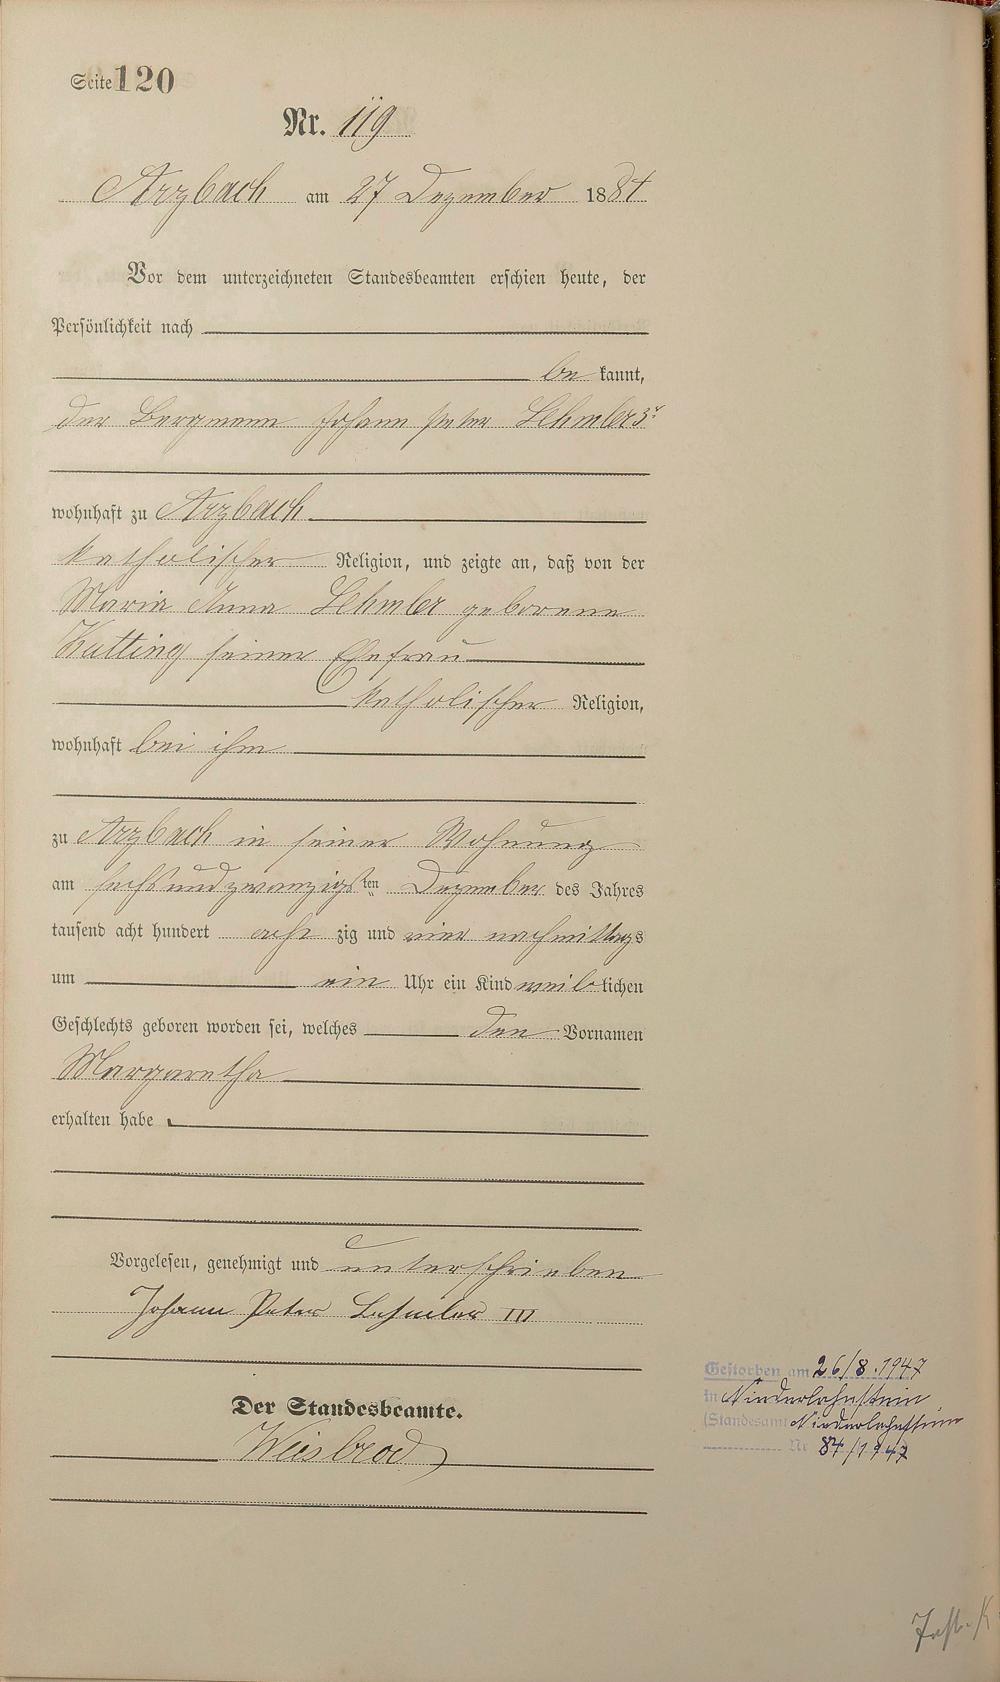 Seite 120
Nr. 119
Arzbach am 27 Dezember 1884
Vor dem unterzeichneten Standesbeamten erschien heute, der
Persönlichkeit nach
be kannt,
der Bergmann Johann Peter Lehmler 3r
wohnhaft zu Arzbach
katholischer Religion, und zeigte an, daß von der
Maria Anna Lehmler geborene
Kutting seiner Ehefrau
katholischer Religion,
wohnhaft bei ihm
zu Arzbach in seiner Wohnung
am sechsundzwanzigsten Dezember des Jahres
tausend acht hundert acht zig und vier nachmittags
um ein Uhr ein Kind weiblichen
Geschlechts geboren worden sei, welches den Vornamen
Margaretha
erhalten habe
Vorgelesen, genehmigt und unterschrieben
Johann Peter Lehmler III
Der Standesbeamte.
Weisbrod
Gestorben am 26/8.1947
in Niederlahnstein
(Standesamt Niederlahnstein
Nr 84/1947